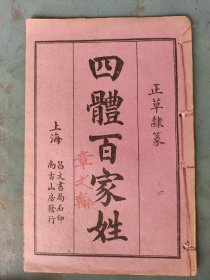 正草隸篆
四體百家姓
上海
昌文書局石印
尚古山房發行